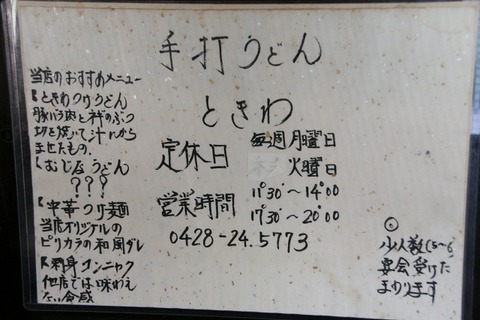 手打うどん
ときわ
当店のおすすめメニュー
ときわつけうどん
豚バラ肉とネギのぶつ
切を焼いて汁にから
ませたもの.
むじなうどん
???
中華つけ麺
当店オリジナルの
ピリカラの和風ダレ
刺身コンニャク
他店では味わえ
ない食感
定休日
毎週月曜日
火曜日
営業時間
11°30'～14°00
17°30'～20°00
0428-24.5773
少人数(5～6)
宴会受けた
まわります